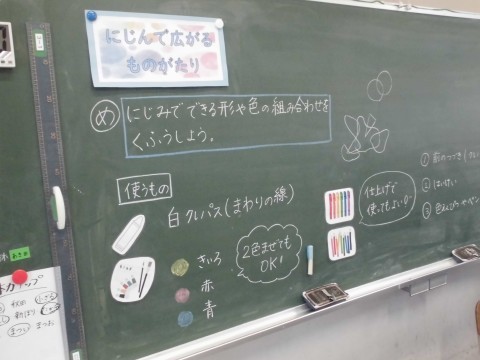 にじんで広がる
ものがたり
め
にじみでできる形や色の組み合わせを
くふうしよう。
使うもの
白クレパス(まわりの線)
きいろ
赤
青
2色まぜても
OK!
仕上げで
使ってもよいよ
① 前のつづき
② はいけい
③